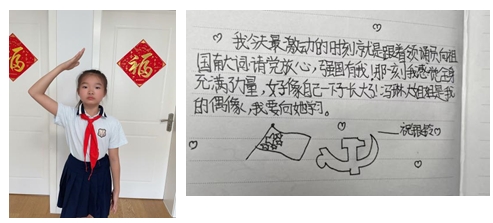 福
福
我今天最激动的时刻就是跟着领诵员向祖
国 请党放心,强国有我!那一刻我感觉全身
充满了力量,好像自己一下子长大了!冯琳大姐姐是我
的偶像,我要向她学习。